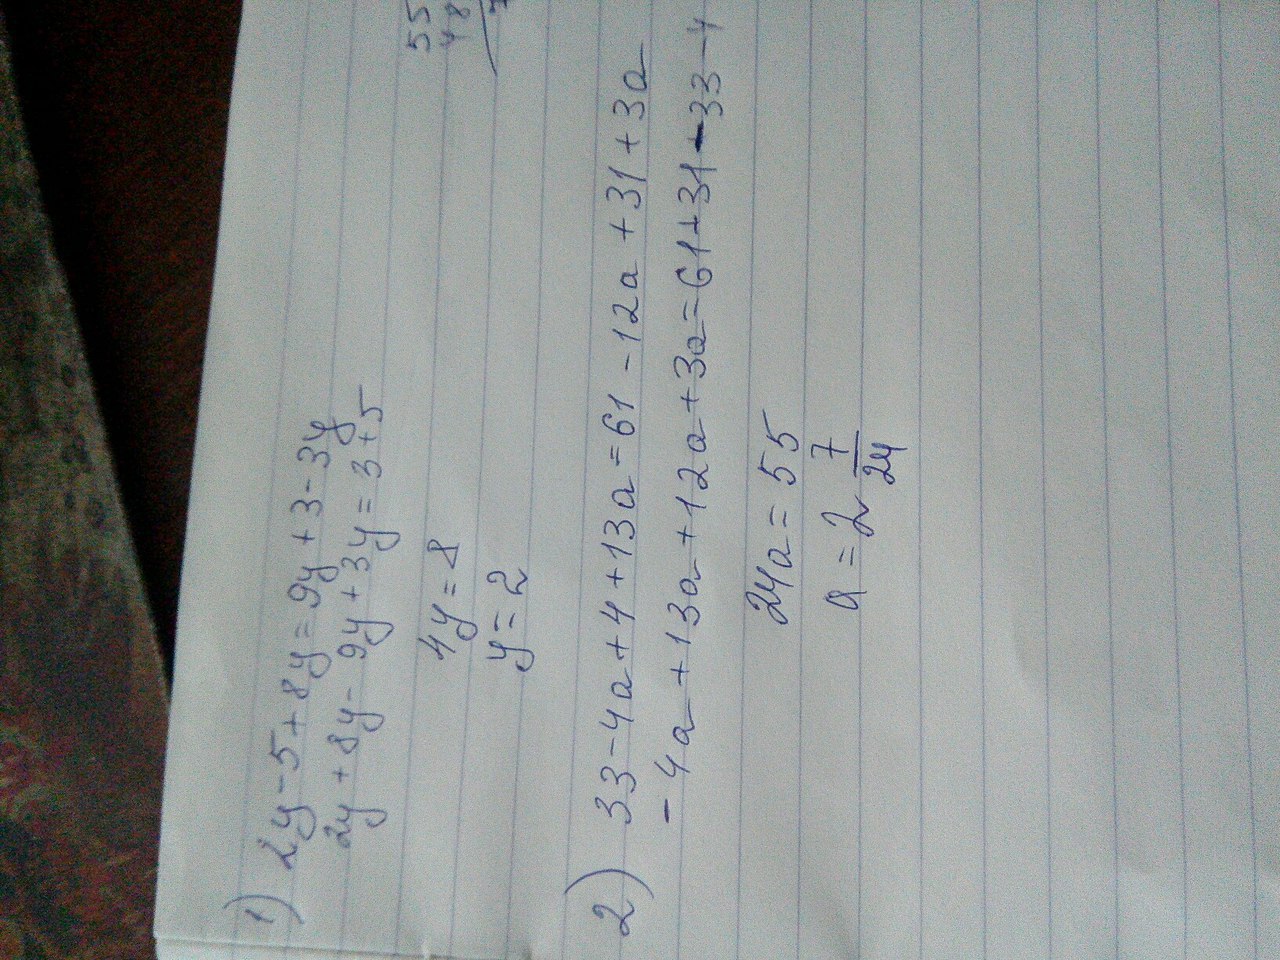 55
48
7
1) 2y-5+8y=9y+3-3y
2y+8y-9y+3y=3+5
4y=8
y=2
2) 33-4a+4+13a=61-12a+31+3a
-4a+13a+12a+3a=61+31-33-4
24a=55
a=2 7/24